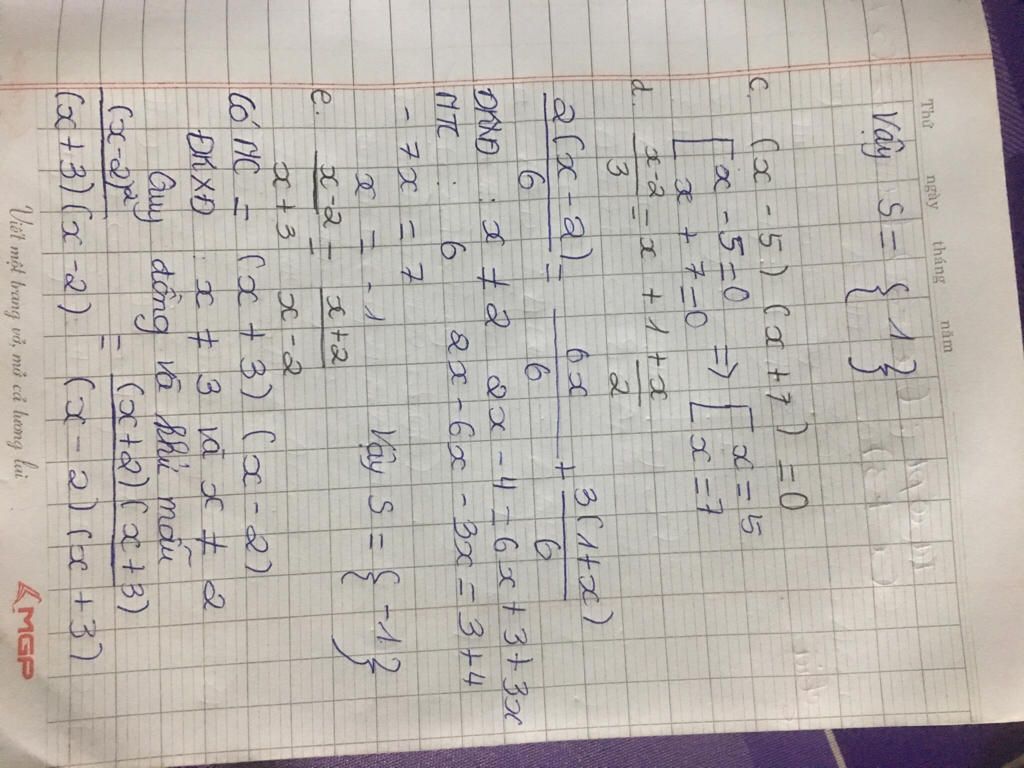 Thứ ngày tháng năm
Vậy S = { 1 }
c. (x - 5) (x + 7) = 0
[ x - 5 = 0 => [ x = 5
[ x + 7 = 0 [ x = 7
d. x-2/3 = -x + 1+x/2
2(x - 2)/6 = 6x/6 + 3(1+x)/6
ĐKXĐ : x ≠ 2 2x - 4 = 6x + 3 + 3x
MTC : 6 2x - 6x - 3x = 3 + 4
- 7x = 7
x = -1 Vậy S = { -1 }
e. x-2/x+3 = x+2/x-2
Có MC = (x + 3) (x - 2)
ĐKXĐ : x ≠ 3 và x ≠ 2
Quy đồng và khử mẫu
(x-2)²/(x+3)(x-2) = (x+2)(x+3)/(x-2)(x+3)
Viết một trang vở, mở cả tương lai
MGP